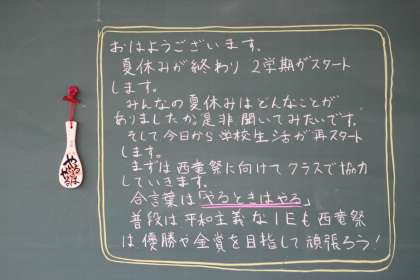 おはようございます。
夏休みが終わり 2学期がスタート
します。
みんなの夏休みはどんなことが
ありましたか是非聞いてみたいです。
そして今日から学校生活が再スタート
します。
まずは西竜祭に向けてクラスで協力
していきます。
合言葉は「やるときはやる」
普段は平和主義な1Eも西竜祭
は優勝や金賞を目指して頑張ろう!